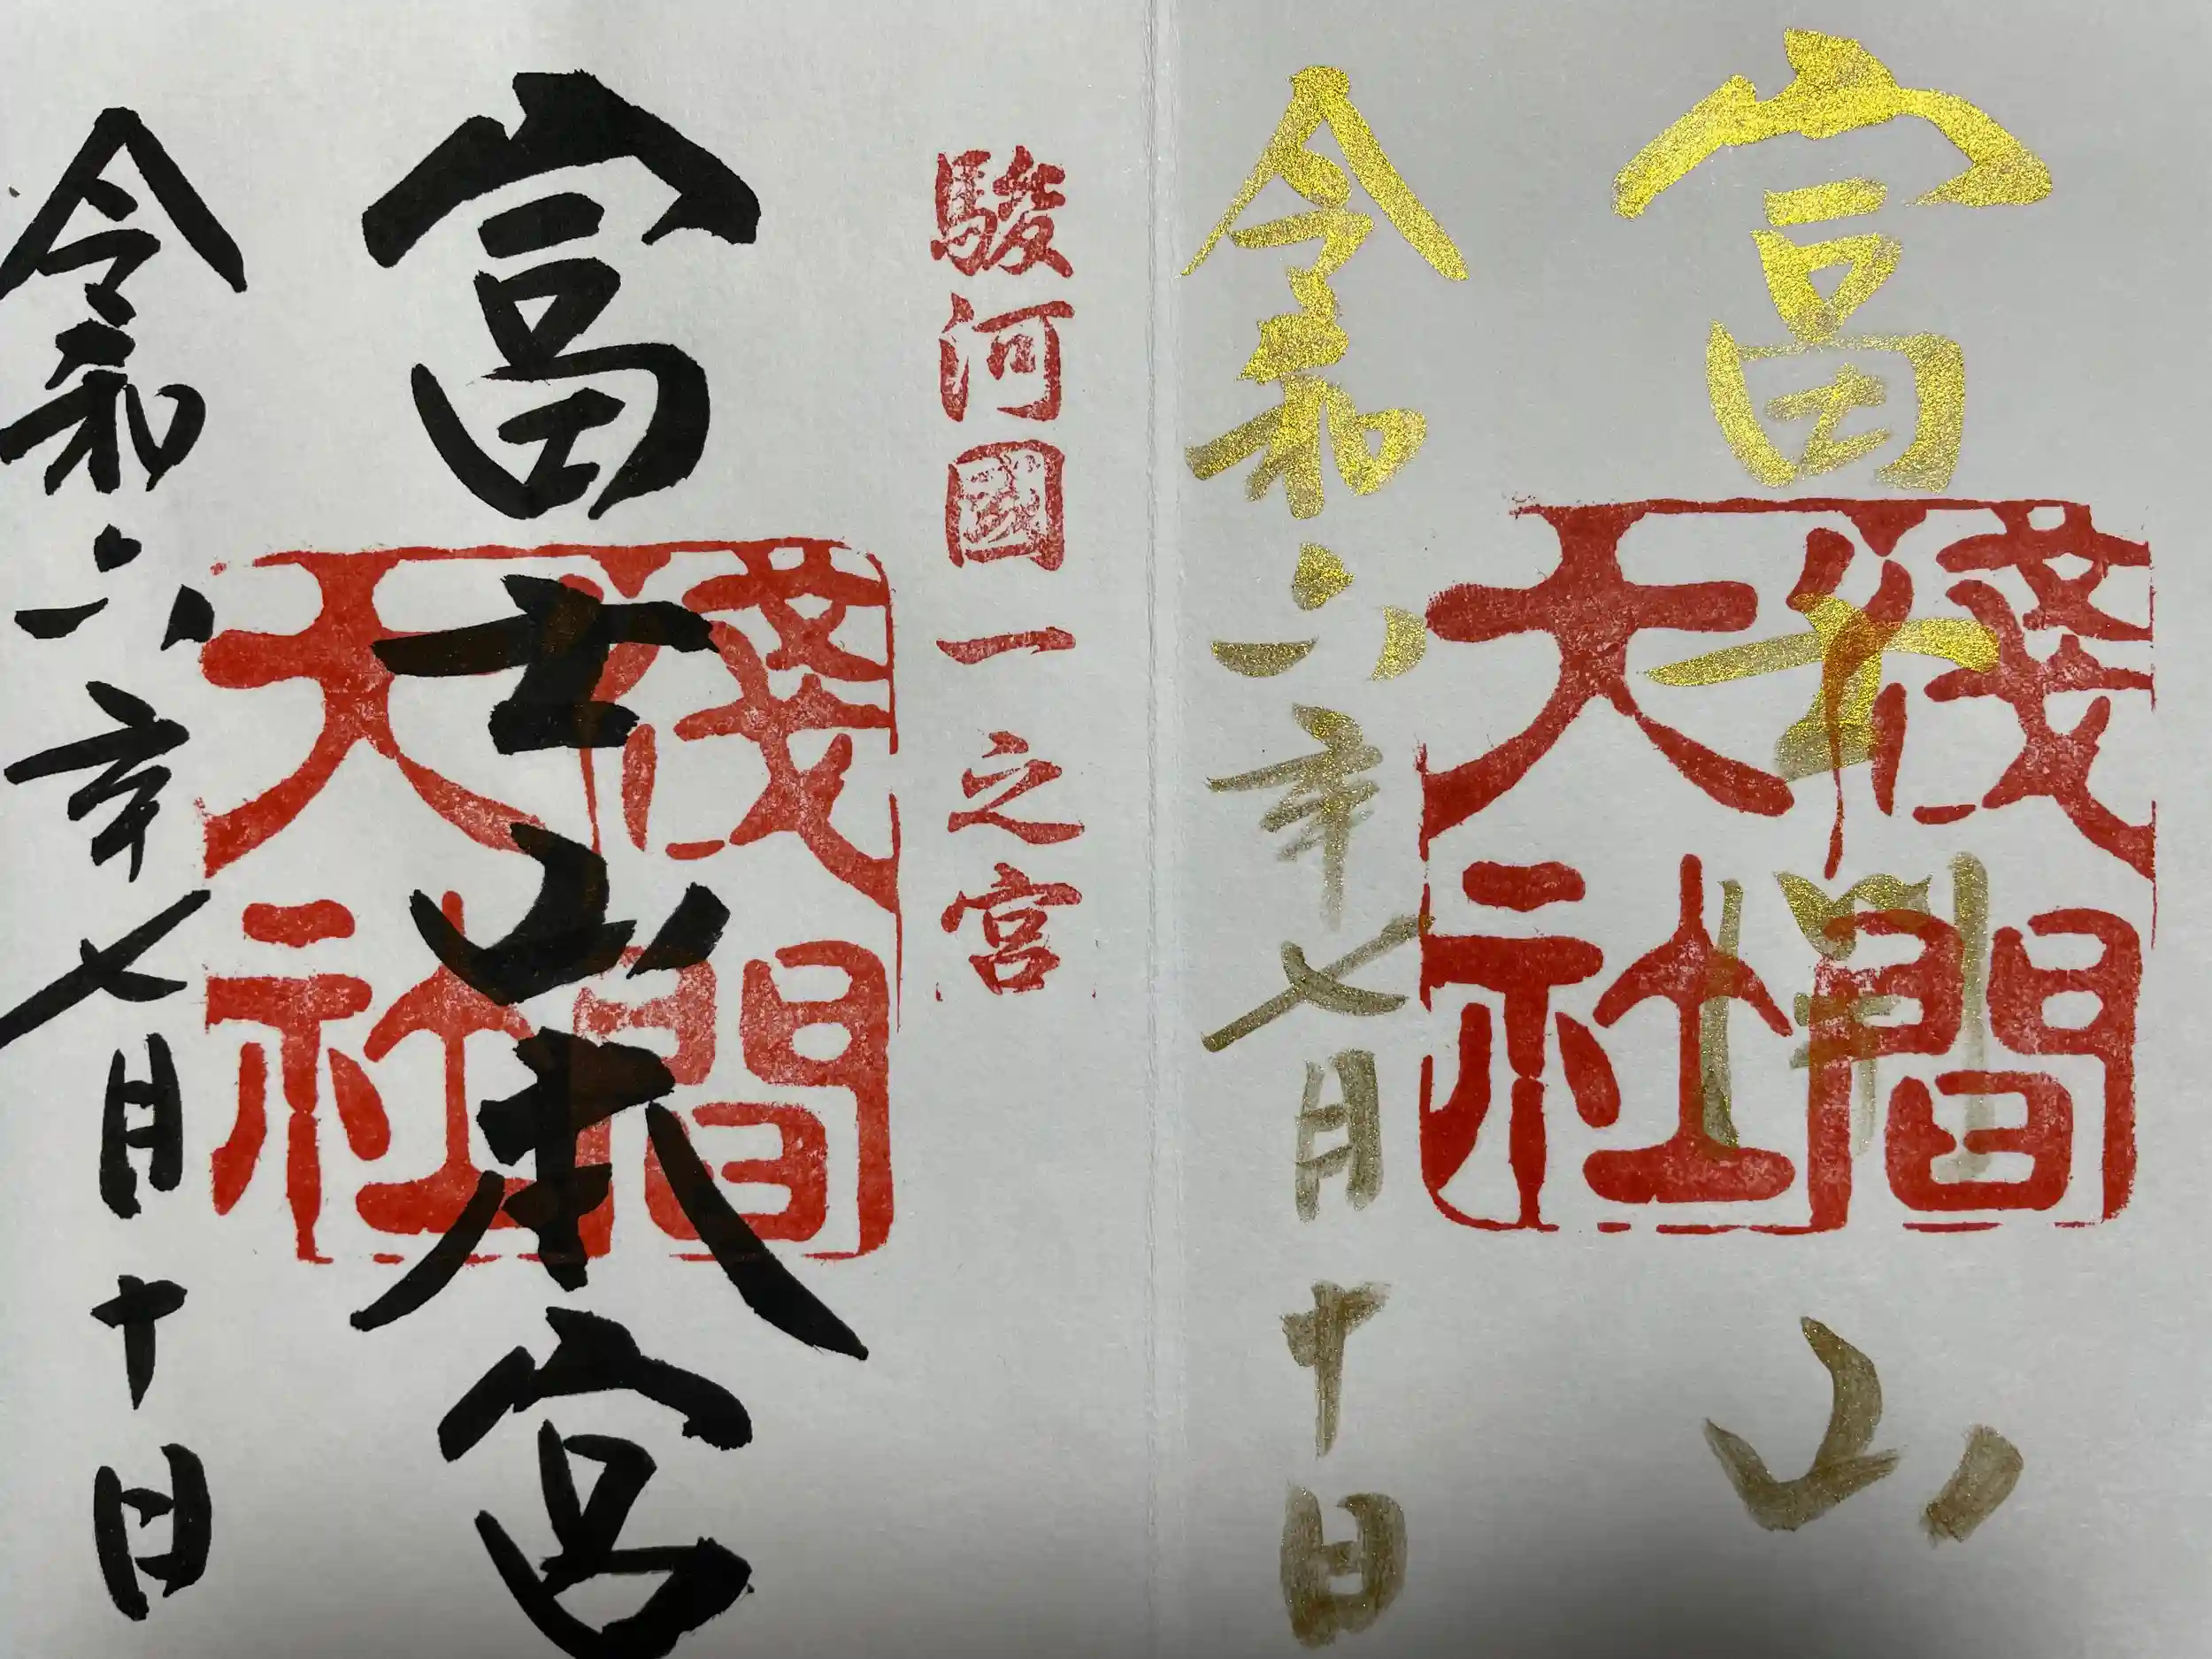 富士開山
淺間大社
令和六年七月十日
駿河國一之宮
富士山本宮
淺間大社
令和六年七月十日